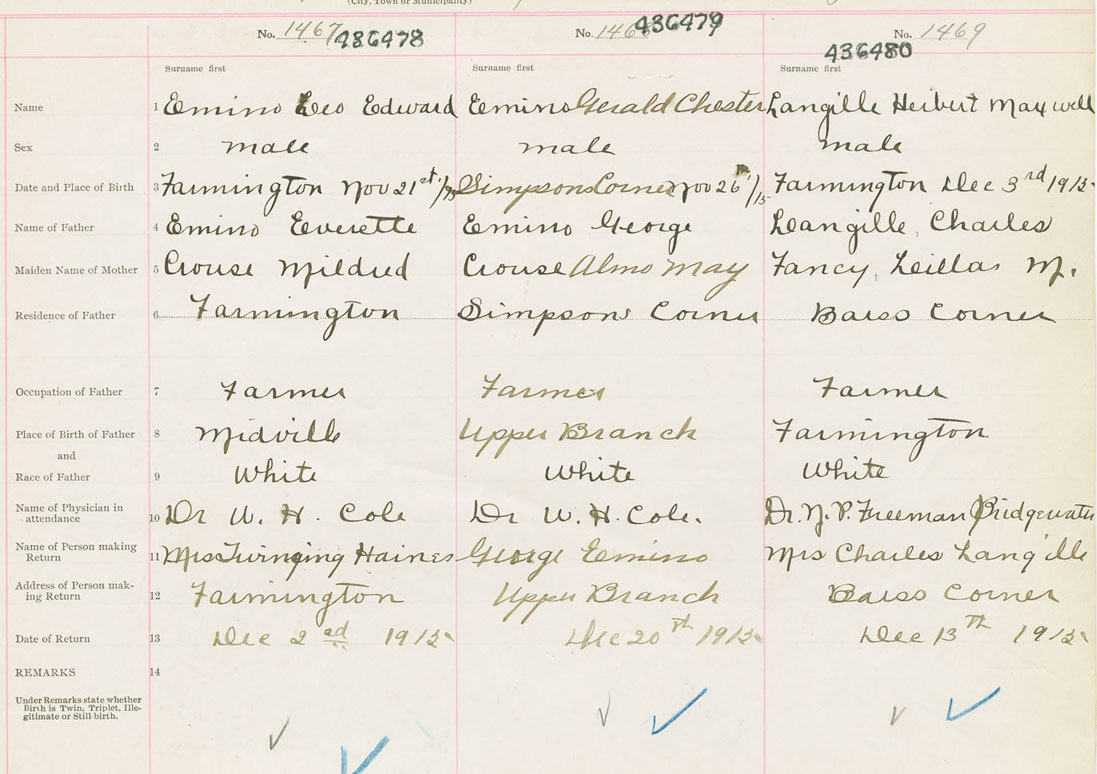 (City, Town or Municipality)
No. 1467 436478 No. 1468 436479 No. 1469 436480
Surname first Surname first Surname first
Name 1 Emino Leo Edward Emino Gerald Chester Langille Herbert Maxwell
Sex 2 male male male
Date and Place of Birth 3 Farmington Nov 21st/15 Simpsons Corner Nov 26th/15 Farmington Dec 3rd 1915
Name of Father 4 Emino Everette Emino George Langille, Charles
Maiden Name of Mother 5 Crouse Mildred Crouse Almo May Fancy, Leillas M.
Residence of Father 6 Farmington Simpsons Corner Barss Corner
Occupation of Father 7 Farmer Farmer Farmer
Place of Birth of Father 8 Midville Upper Branch Farmington
and
Race of Father 9 White White White
Name of Physician in
attendance 10 Dr W. H. Cole Dr W. H. Cole. Dr. N. P. Freeman Bridgewater
Name of Person making
Return 11 Mrs Twinging Haines George Emino Mrs Charles Langille
Address of Person mak-
ing Return 12 Farmington Upper Branch Barss Corner
Date of Return 13 Dec 2nd 1915 Dec 20th 1915 Dec 13th 1915
REMARKS 14
Under Remarks state whether
Birth is Twin, Triplet, Ille-
gitimate or Still-birth.